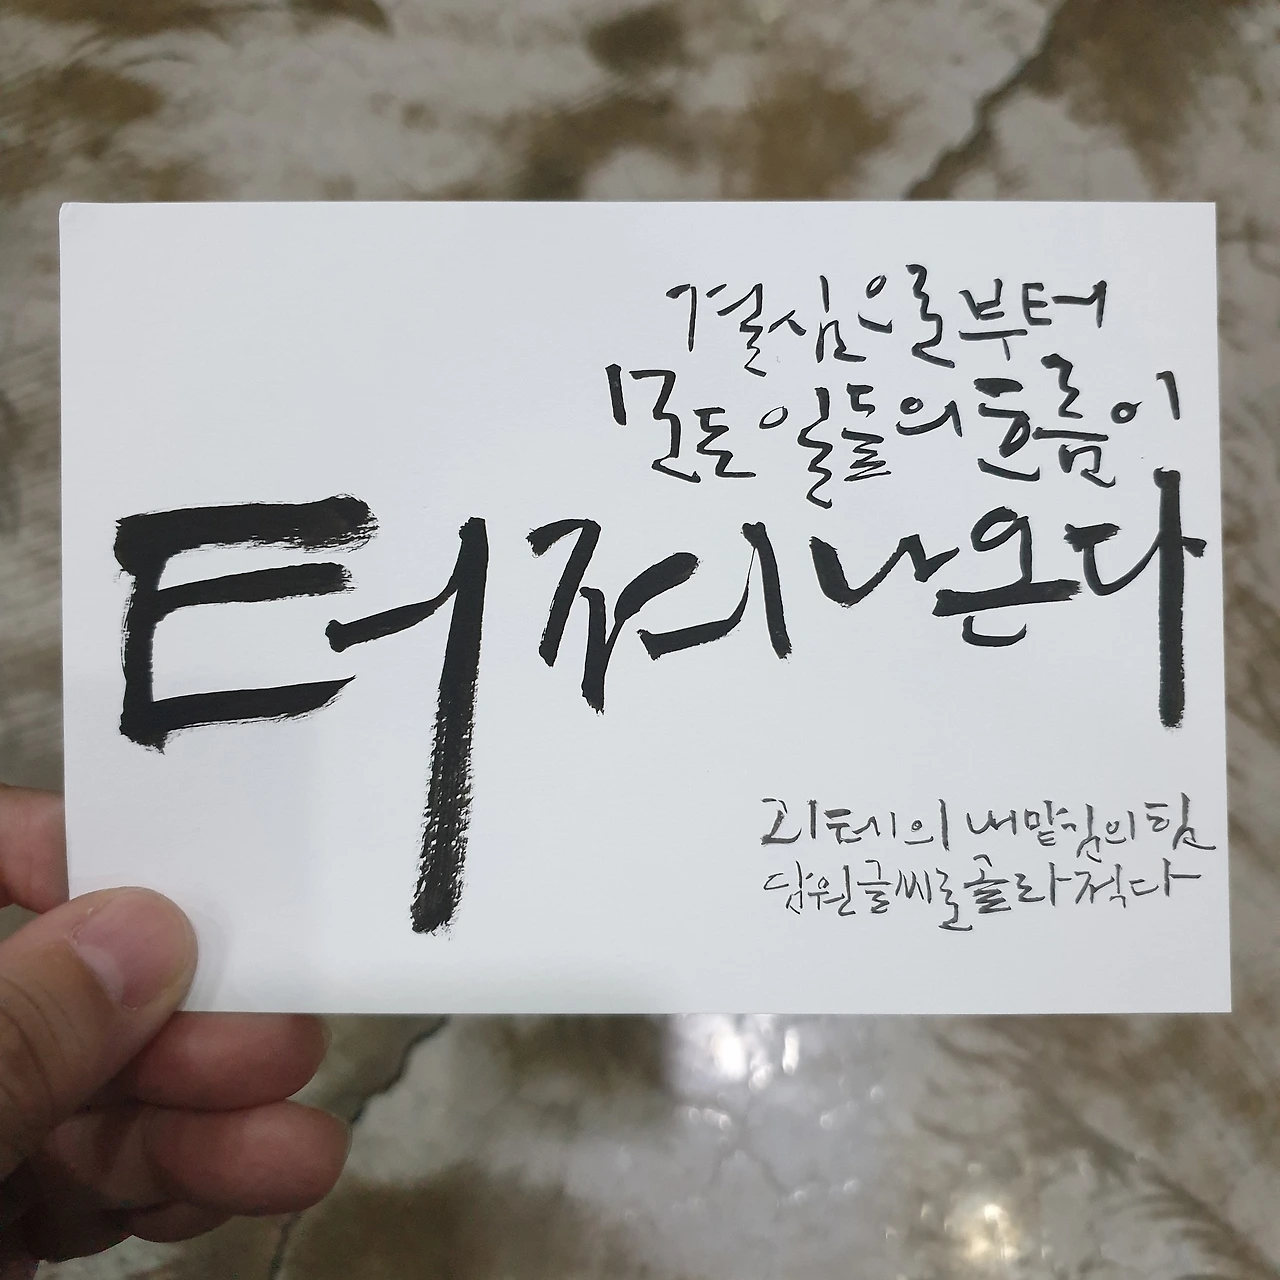 결심으로부터
모든 일들의 흐름이
터져나온다
괴테의 내맡김의 힘
담원글씨로 골라 적다